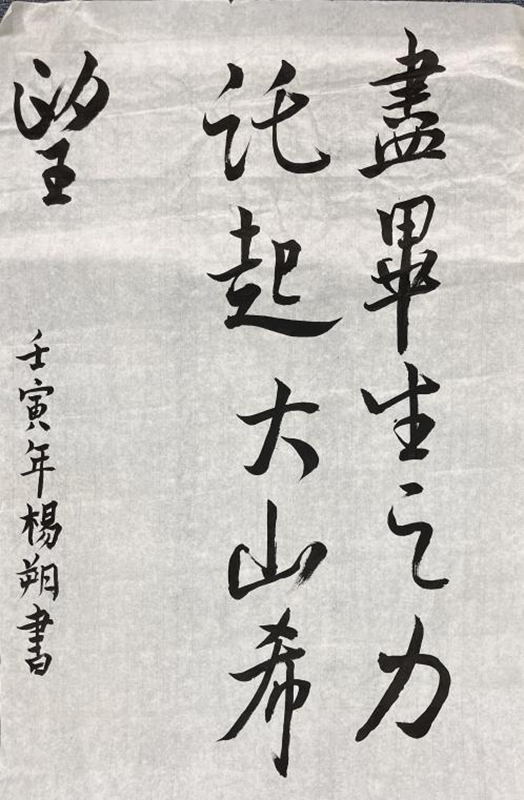 盡畢生之力
託起大山希
望
壬寅年楊朔書